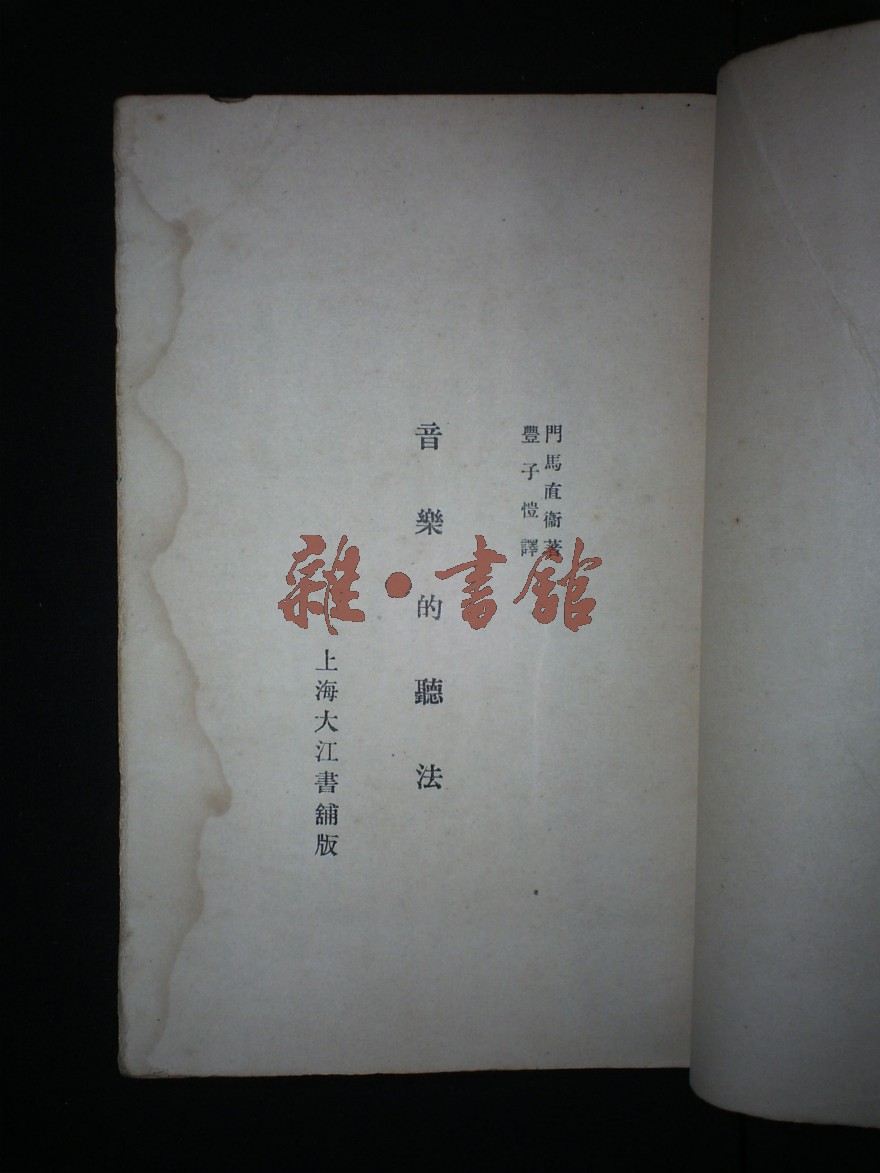 門馬直衞著
豐子愷譯
音樂的聽法
上海大江書舖版
雜·書館